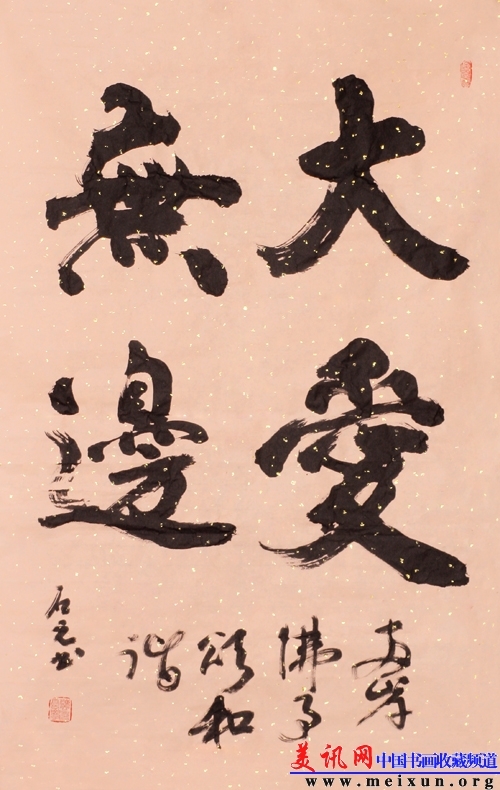 大愛
無邊
两岸
佛子
頌和
諧
美讯网 中国书画收藏频道
www.meixun.org